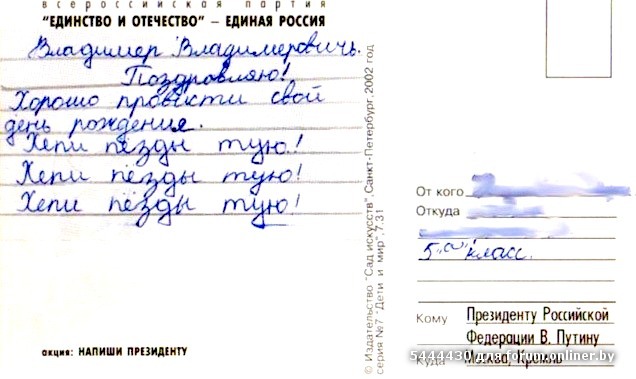 всероссийская партия
"ЕДИНСТВО И ОТЕЧЕСТВО" – ЕДИНАЯ РОССИЯ
Владимер Владимеровичь.
Поздровляю!
Хорошо провéкти свой
день рождения.
Хепи пёзды тую!
Хепи пёзды тую!
Хепи пёзды тую!
акция: НАПИШИ ПРЕЗИДЕНТУ
© Издательство "Сад искусств", Санкт-Петербург, 2002 год
серия №7 "Дети и мир", 7.31
От кого
Откуда
5 "а" класс.
Кому Президенту Российской
Федерации В. Путину
Куда Москва, Кремль
5444430 для forum.onliner.by